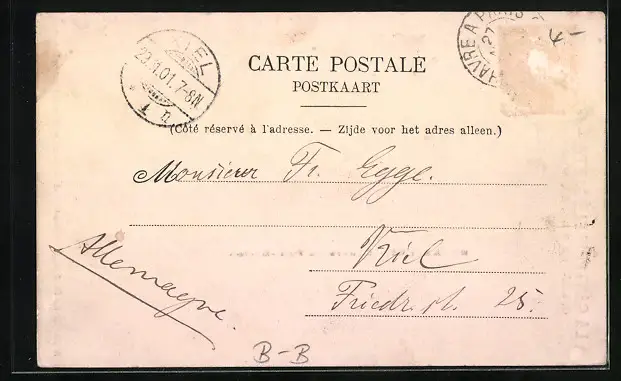 KIEL
29.1.01. 7-8N
HAVRE A PARIS
27
4-
CARTE POSTALE
POSTKAART
(Côté réservé à l'adresse. — Zijde voor het adres alleen.)
Monsieur Fr. Egge.
Kiel
Friedr. st. 25.
Allemagne.
B-B